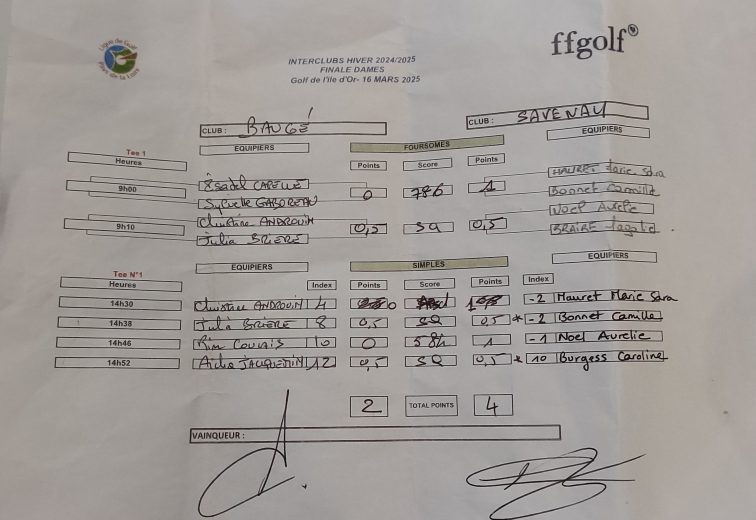 Ligue de Golf
Pays de la Loire
ffgolf
INTERCLUBS HIVER 2024/2025
FINALE DAMES
Golf de l'île d'Or- 16 MARS 2025
CLUB : BAUGÉ CLUB : SAVENAY
Tee 1 EQUIPIERS FOURSOMES EQUIPIERS
Heures Points Score Points
9h00 Isabel CAPELLE 0 7&6 1 HAURET Marie Sara
Sylvette GABOREAU Bonnet Camille
9h10 Christine ANDROUIN 0,5 SQ 0,5 Noel Aurelie
Julia BRIERE BRAIRE
Tee N°1 EQUIPIERS SIMPLES EQUIPIERS
Heures Index Points Score Points Index
14h30 Christine ANDROUIN 4 0 -2 Hauret Marie Sara
14h38 Julia BRIERE 8 0,5 SQ 0,5 * -2 Bonnet Camille
14h46 10 0 1 -1 Noel Aurelie
14h52 JACQUEMIN 12 0,5 SQ 0,5 * 10 Burgess Caroline
2 TOTAL POINTS 4
VAINQUEUR :